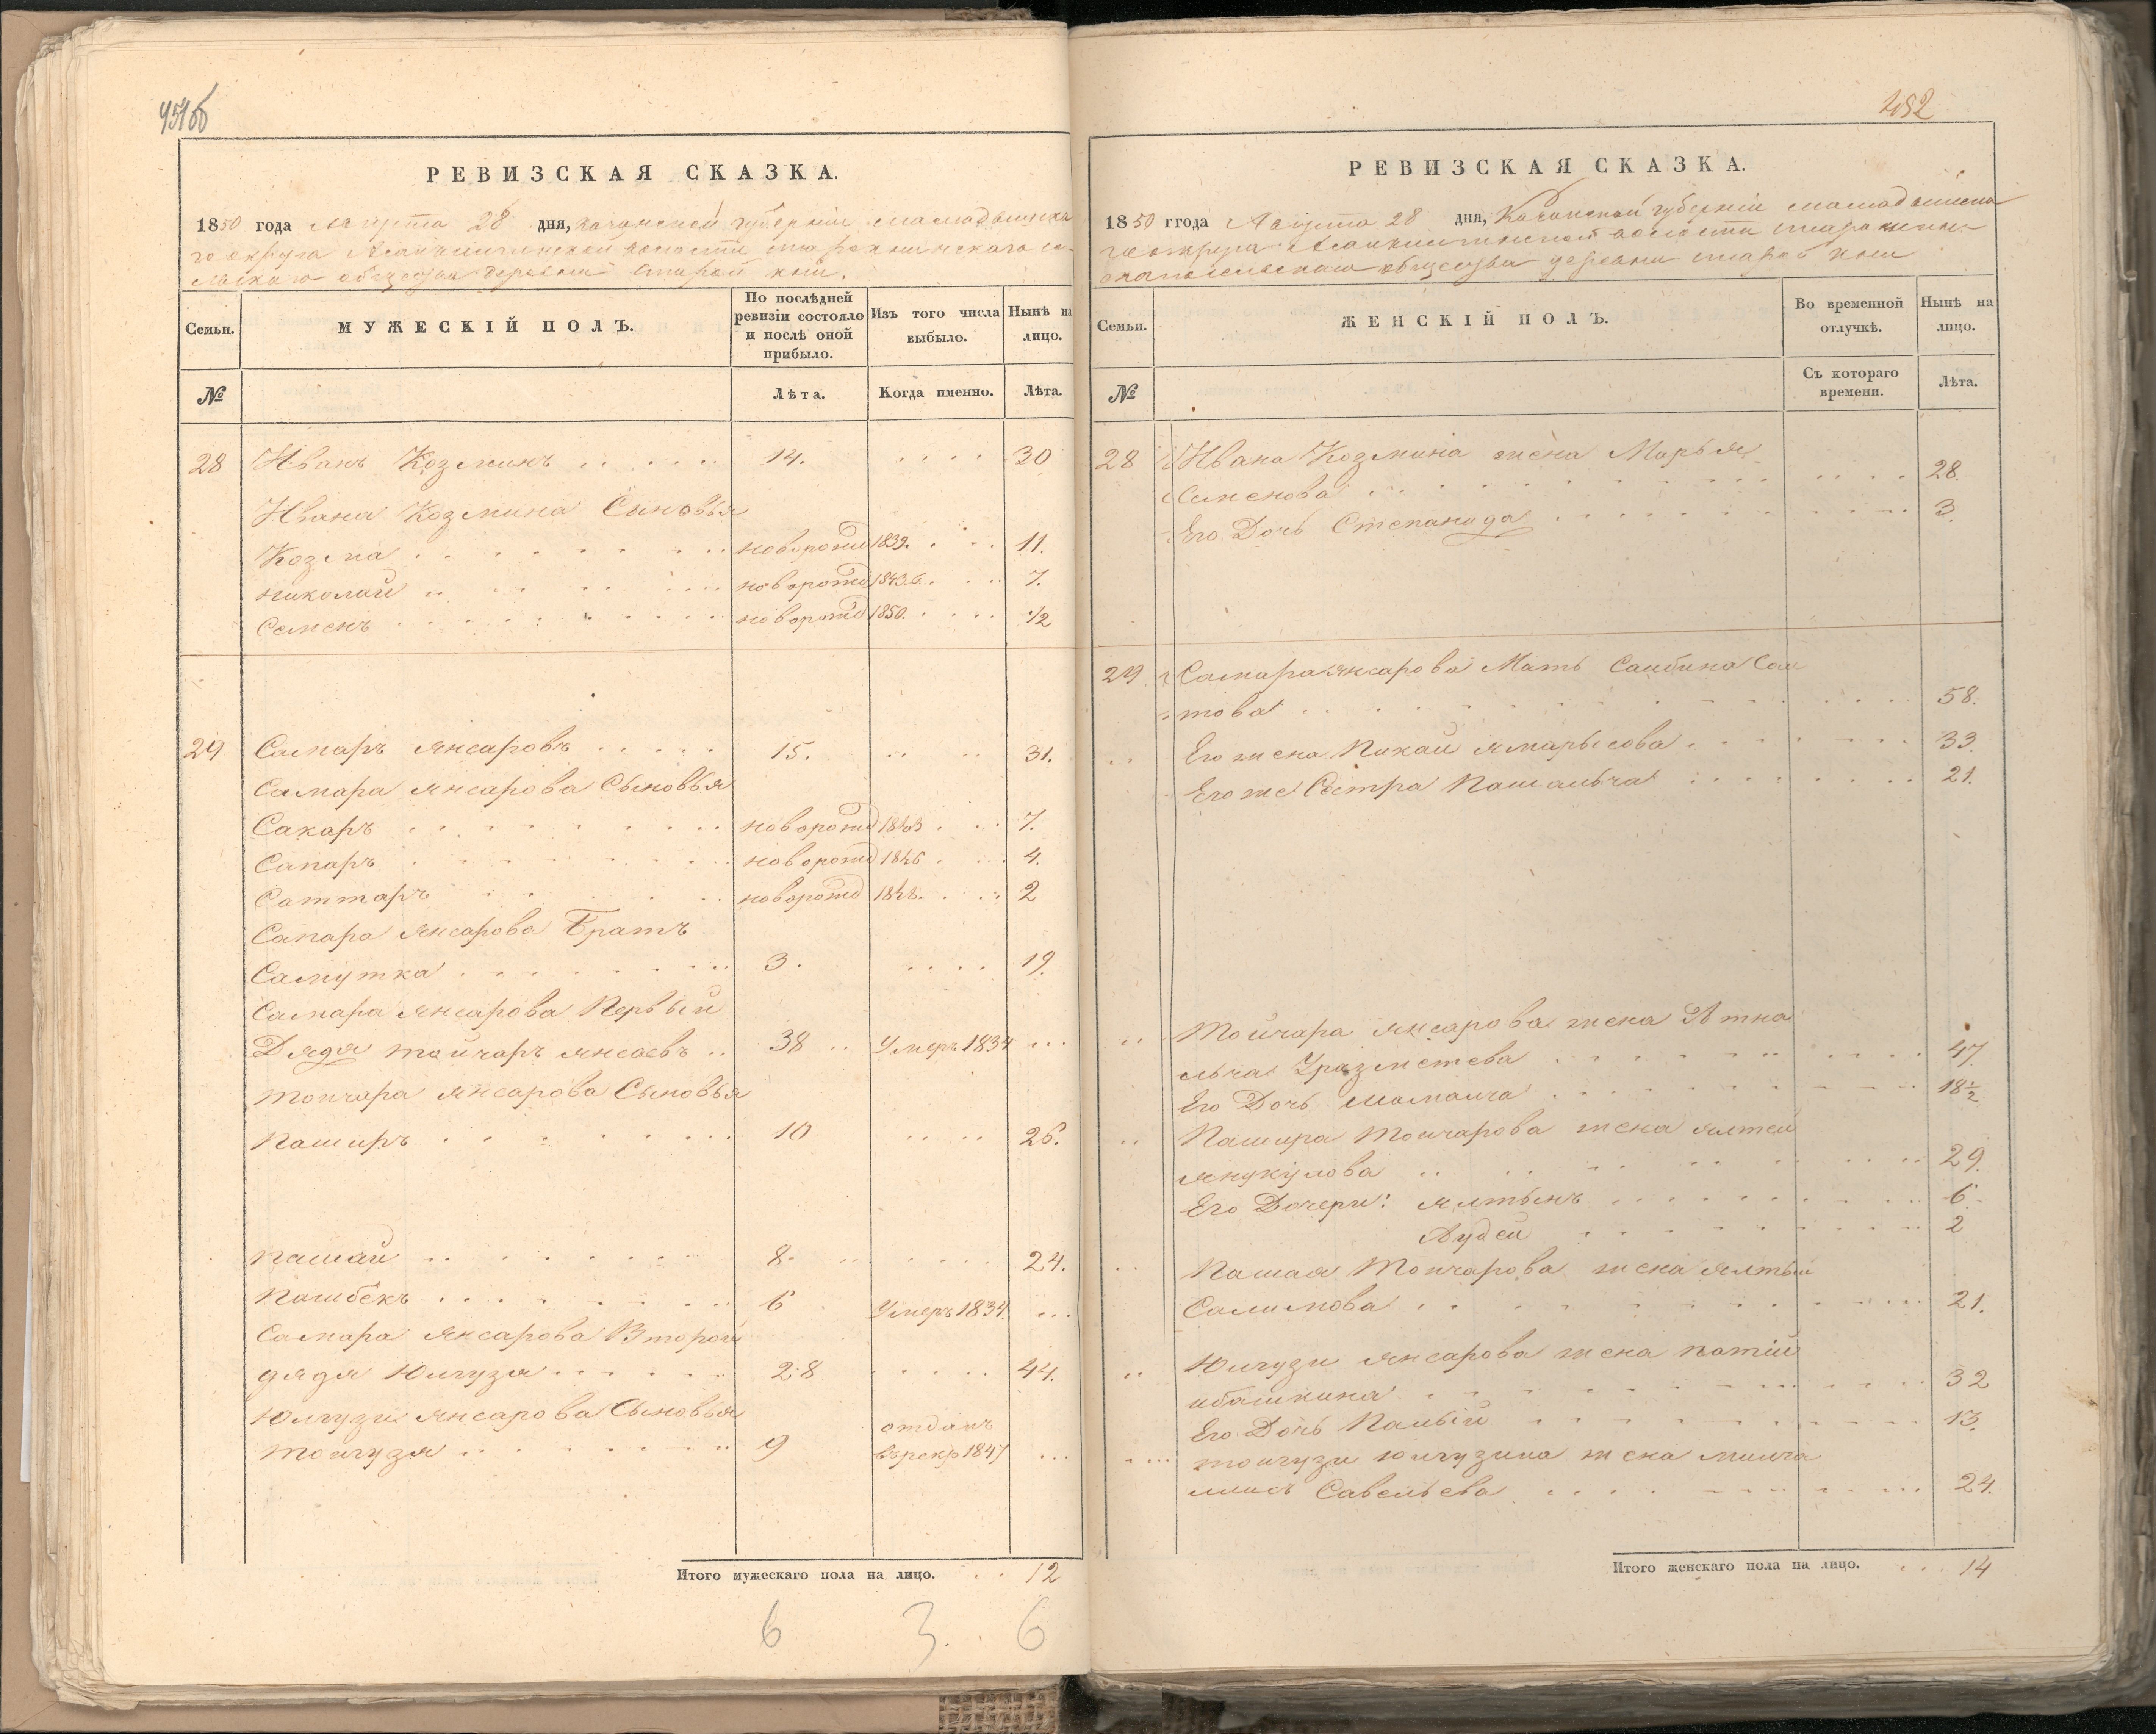 451б
РЕВИЗСКАЯ СКАЗКА.
1850 года Августа 28 дня, Казанской губерніи Мамадышска
го округа волости
льскаго общества деревни Старой Кни.
Семьи.
МУЖЕСКІЙ ПОЛЪ.
По послѣдней ревизіи состояло и послѣ оной прибыло.
Изъ того числа выбыло.
Нынѣ на лицо.
№
Лѣта.
Когда именно.
Лѣта.
28 Иванъ Козминъ 14. 30
Ивана Козмина Сыновья
Козма новорожд 1839. 11.
Николай новорожд 1843. 7.
Семенъ новорожд 1850. 1/2
29 Самаръ Янсаровъ 15. 31.
Самара Янсарова Сыновья
Сакаръ новорожд 1843 7.
Сапаръ новорожд 1846 4.
Саттаръ новорожд 1848. 2
Самара Янсарова Братъ
Самутка 3. 19.
Самара Янсарова Первый
Дядя Тойчаръ Янсаевъ 38 Умеръ 1834
Тойчара Янсарова Сыновья
Паширъ 10 26.
Пашай 8. 24.
Пашбекъ 6 Умеръ 1834.
Самара Янсарова Второй
дядя Юлгузя 28 44.
Юлгузи Янсарова Сыновья
Тойгузя 9 отданъ
въ рекр 1847
Итого мужескаго пола на лицо. 12
6 3. 6
452
РЕВИЗСКАЯ СКАЗКА.
1850 ггода Августа 28 дня, Казанской губерніи Мамадышска
го округа волости
общества деревни Старой Кни
Семьи.
ЖЕНСКІЙ ПОЛЪ.
Во временной отлучкѣ.
Нынѣ на лицо.
№
Съ котораго времени.
Лѣта.
28 Ивана Козмина жена Марья
Семенова 28.
Его Дочь Степанида 3.
29 Самара Янсарова Мать Саибина Саи
това 58.
Его жена Пикай Ямарысова 33.
Его же Сестра Пашалыча 21.
Тойчара Янсарова жена Атна
лыча Уразметева 47.
Его Дочь Мамалча 18 1/2
Пашира Тойчарова жена Ялтей
Янукулова 29.
Его Дочери: Ялтынъ 6.
Аудей 2
Пашая Тойчарова жена Ялтый
Салимова 21.
Юлгузи Янсарова жена Патій
ибашкина 32
Его Дочь Палый 13.
Тойгузи Юлгузина жена
Савельева 24.
Итого женскаго пола на лицо. 14